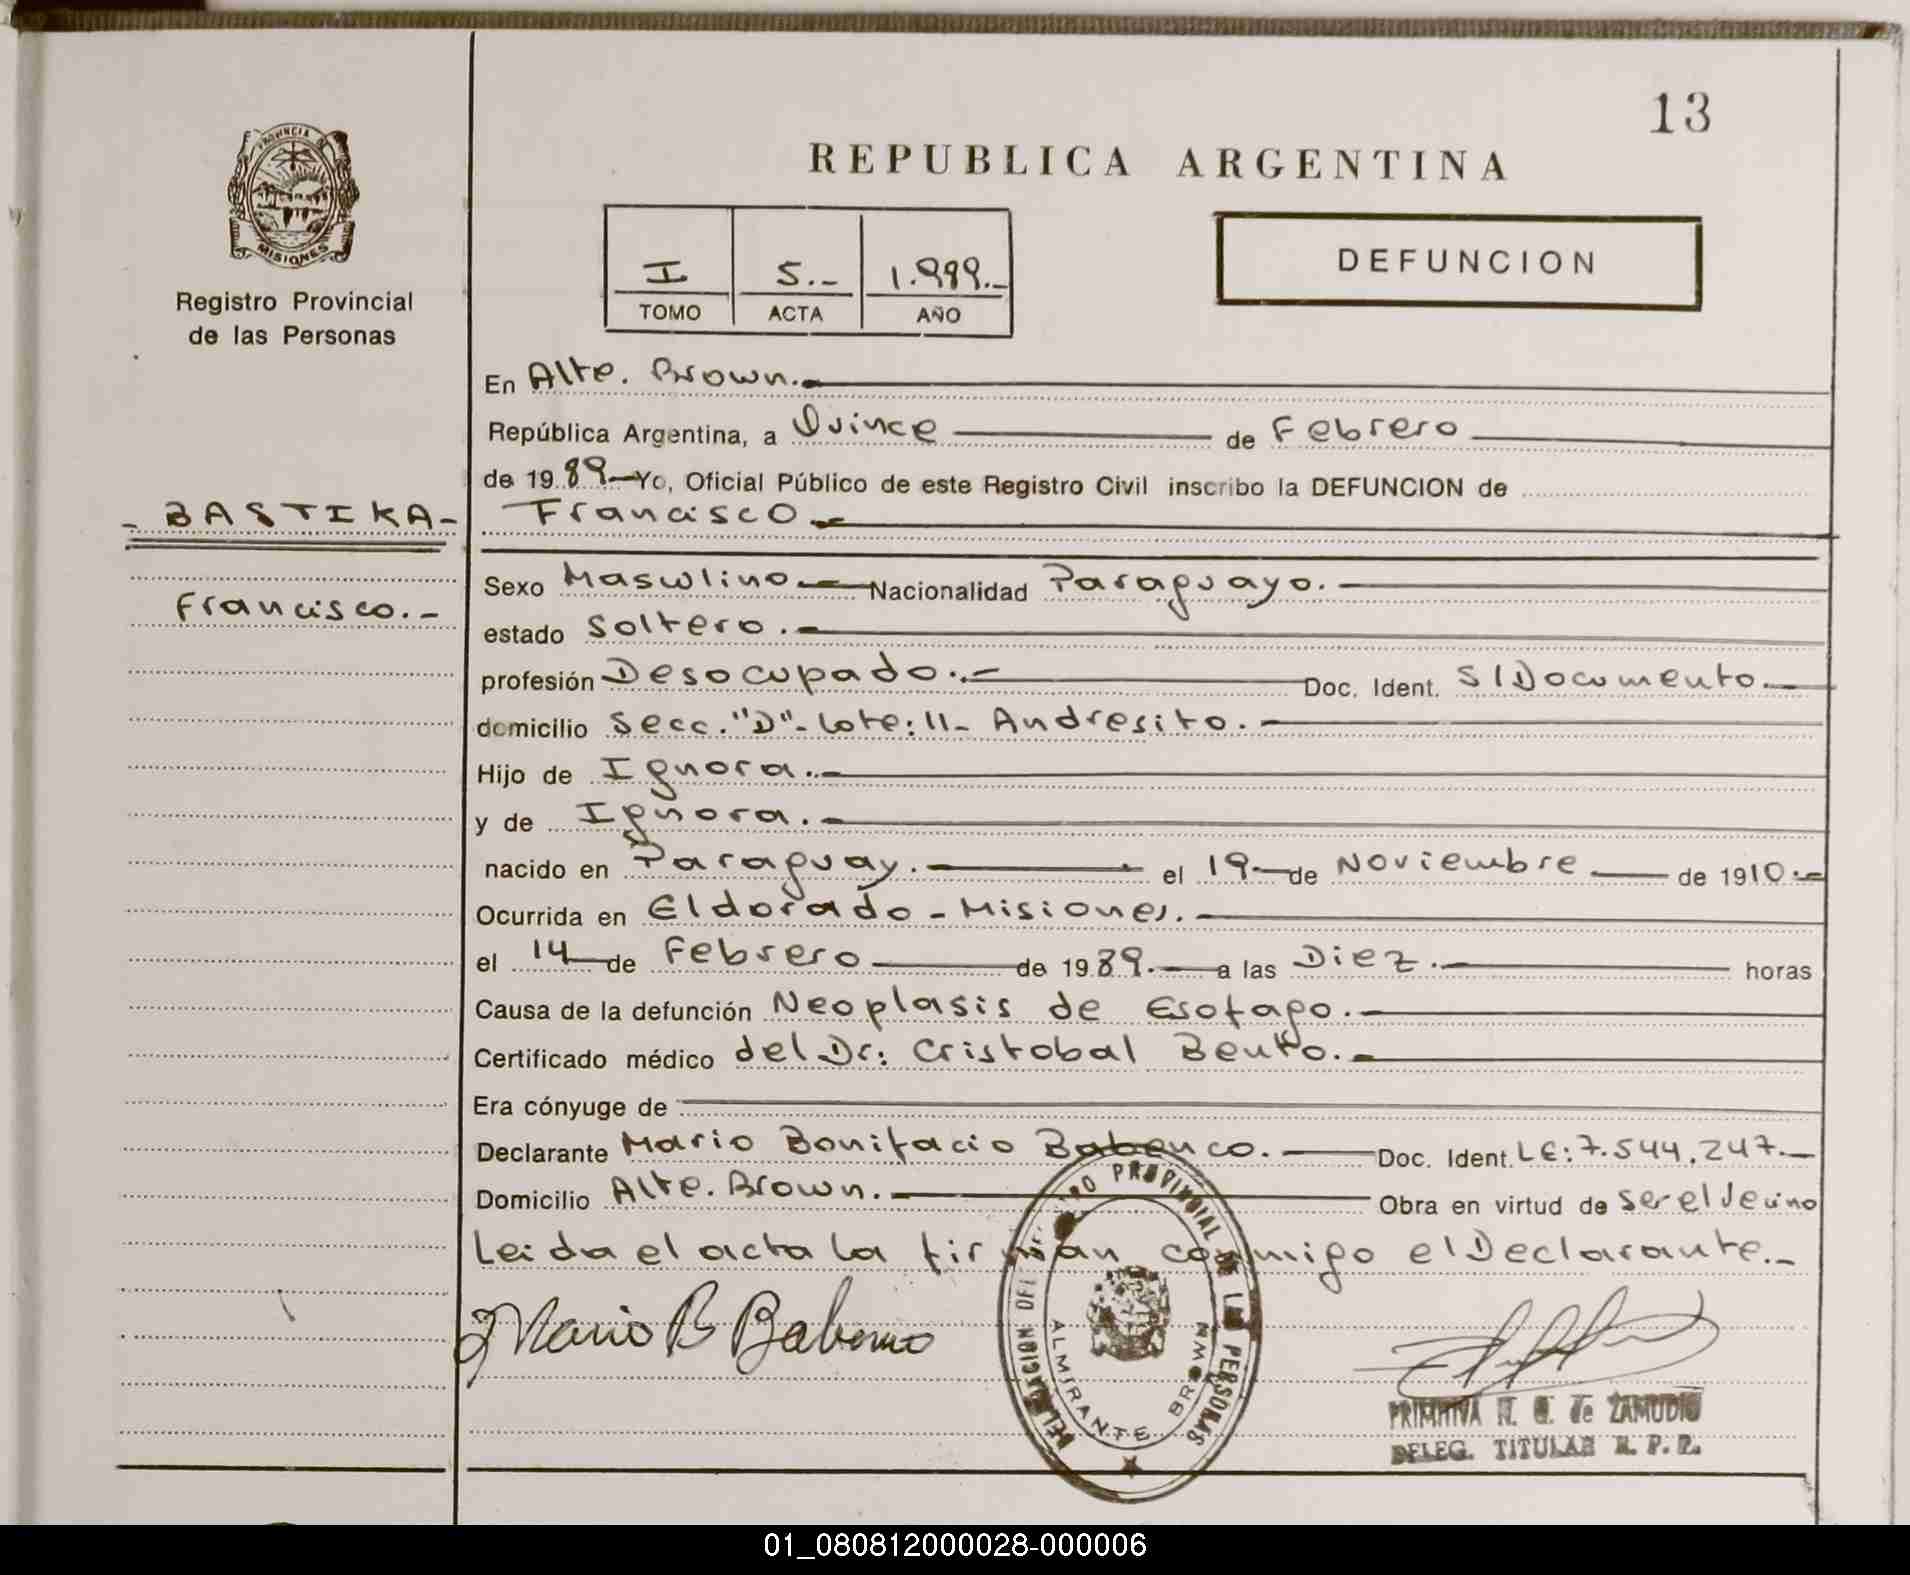 13
PROVINCIA
MISIONES
Registro Provincial
de las Personas
REPUBLICA ARGENTINA
I 5.- 1.989.-
TOMO ACTA AÑO
DEFUNCION
En Alte. Brown.
República Argentina, a Quince de Febrero
de 1989 Yo, Oficial Público de este Registro Civil inscribo la DEFUNCION de
- BASTIKA - Francisco.
Sexo Masculino. Nacionalidad Paraguayo.
Francisco.-
estado Soltero.
profesión Desocupado.- Doc. Ident. S/Documento.
domicilio Secc. "D"- Lote: 11- Andresito.
Hijo de Ignora.
y de Ignora.
nacido en Paraguay. el 19 de Noviembre de 1910.-
Ocurrida en Eldorado - Misiones.
el 14 de Febrero de 1989. a las Diez. horas
Causa de la defunción Neoplasis de Esofago.
Certificado médico del Dr: Cristobal Benito.
Era cónyuge de
Declarante Mario Bonifacio Babenco. Doc. Ident. LE: 7.544.247.
Domicilio Alte. Brown. Obra en virtud de ser el Vecino
Leida el acta la firman conmigo el Declarante.-
Mario B Babenco
DELEGACION DEL REGISTRO PROVINCIAL DE LAS PERSONAS
ALMIRANTE BROWN
PRIMITIVA N. G. de ZAMUDIO
DELEG. TITULAR R. P. P.
01_080812000028-000006